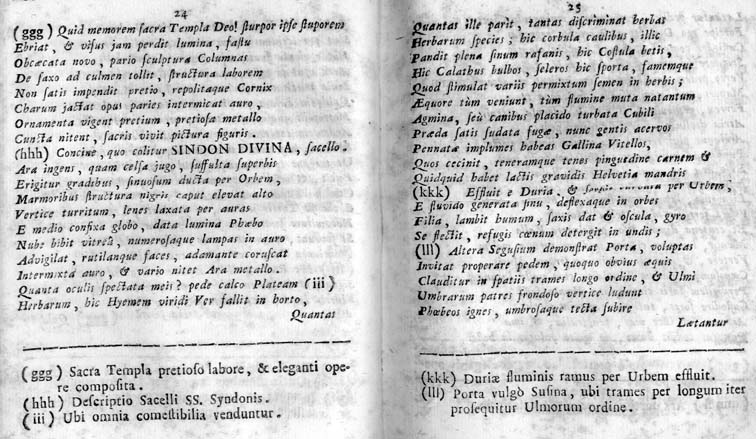 24
(ggg) Quid memorem sacra Templa Deo! sturpor ipse stuporem
Ebriat, & visus jam perdit lumina, fastu
Obcæcata novo, pario sculptura Columnas
De saxo ad culmen tollit, structura laborem
Non satis impendit pretio, repolitaque Cornix
Charum jactat opus paries intermicat auro,
Ornamenta vigent pretium, pretiosa metallo
Cuncta nitent, sacris vivit pictura figuris.
(hhh) Concine, quo colitur SINDON DIVINA, sacello.
Ara ingens, quam celsa jugo, suffulta superbis
Erigitur gradibus, sinuosum ducta per Orbem,
Marmoribus structura nigris caput elevat alto
Vertice turritum, lenes laxata per auras
E medio confixa globo, data lumina Phæbo
Nube bibit vitreâ, numerosaque lampas in auro
Advigilat, rutilanque faces, adamante coruscat
Intermixta auro, & vario nitet Ara metallo.
Quanta oculis spectata meis? pede calco Plateam (iii)
Herbarum, hic Hyemem viridi Ver fallit in horto,
Quantas
(ggg) Sacra Templa pretioso labore, & eleganti ope-
re composita.
(hhh) Descriptio Sacelli SS. Syndonis.
(iii) Ubi omnia comestibilia venduntur.
25
Quantas ille parit, tantas discriminat herbas
Herbarum species; hic corbula caulibus, illic
Pandit plena sinum rafanis, hic Costula betis,
Hic Calathus bulbos, seleros hic sporta, famemque
Quod stimulat variis permixtum semen in herbis;
Æquore tùm veniunt, tùm flumine muta natantum
Agmina, seù canibus placido turbata Cubili
Præda satis sudata fugæ, nunc gentis acervos
Pennatæ implumes habeas Gallina Vitellos,
Quos cecinit, teneramque tenes pinguedine carnem &
Quidquid habet lactis gravidis Helvetia mandris
(kkk) Effluit e Duria. & per Urbem,
E fluvido generata sinu, deflexaque in orbes
Filia, lambit humum, saxis dat & oscula, gyro
Se flectit, refugis cœnum detergit in undis;
(lll) Altera Segusium demonstrat Porta, voluptas
Invitat properare pedem, quoquo obvius æquis
Clauditur in spatiis trames longo ordine, & Ulmi
Umbrarum patres frondoso vertice ludunt
Phœbeos ignes, umbrosaque tecta subire
Lætantur
(kkk) Duriæ fluminis ramus per Urbem effluit.
(lll) Porta vulgò Susina, ubi trames per longum iter
prosequitur Ulmorum ordine.